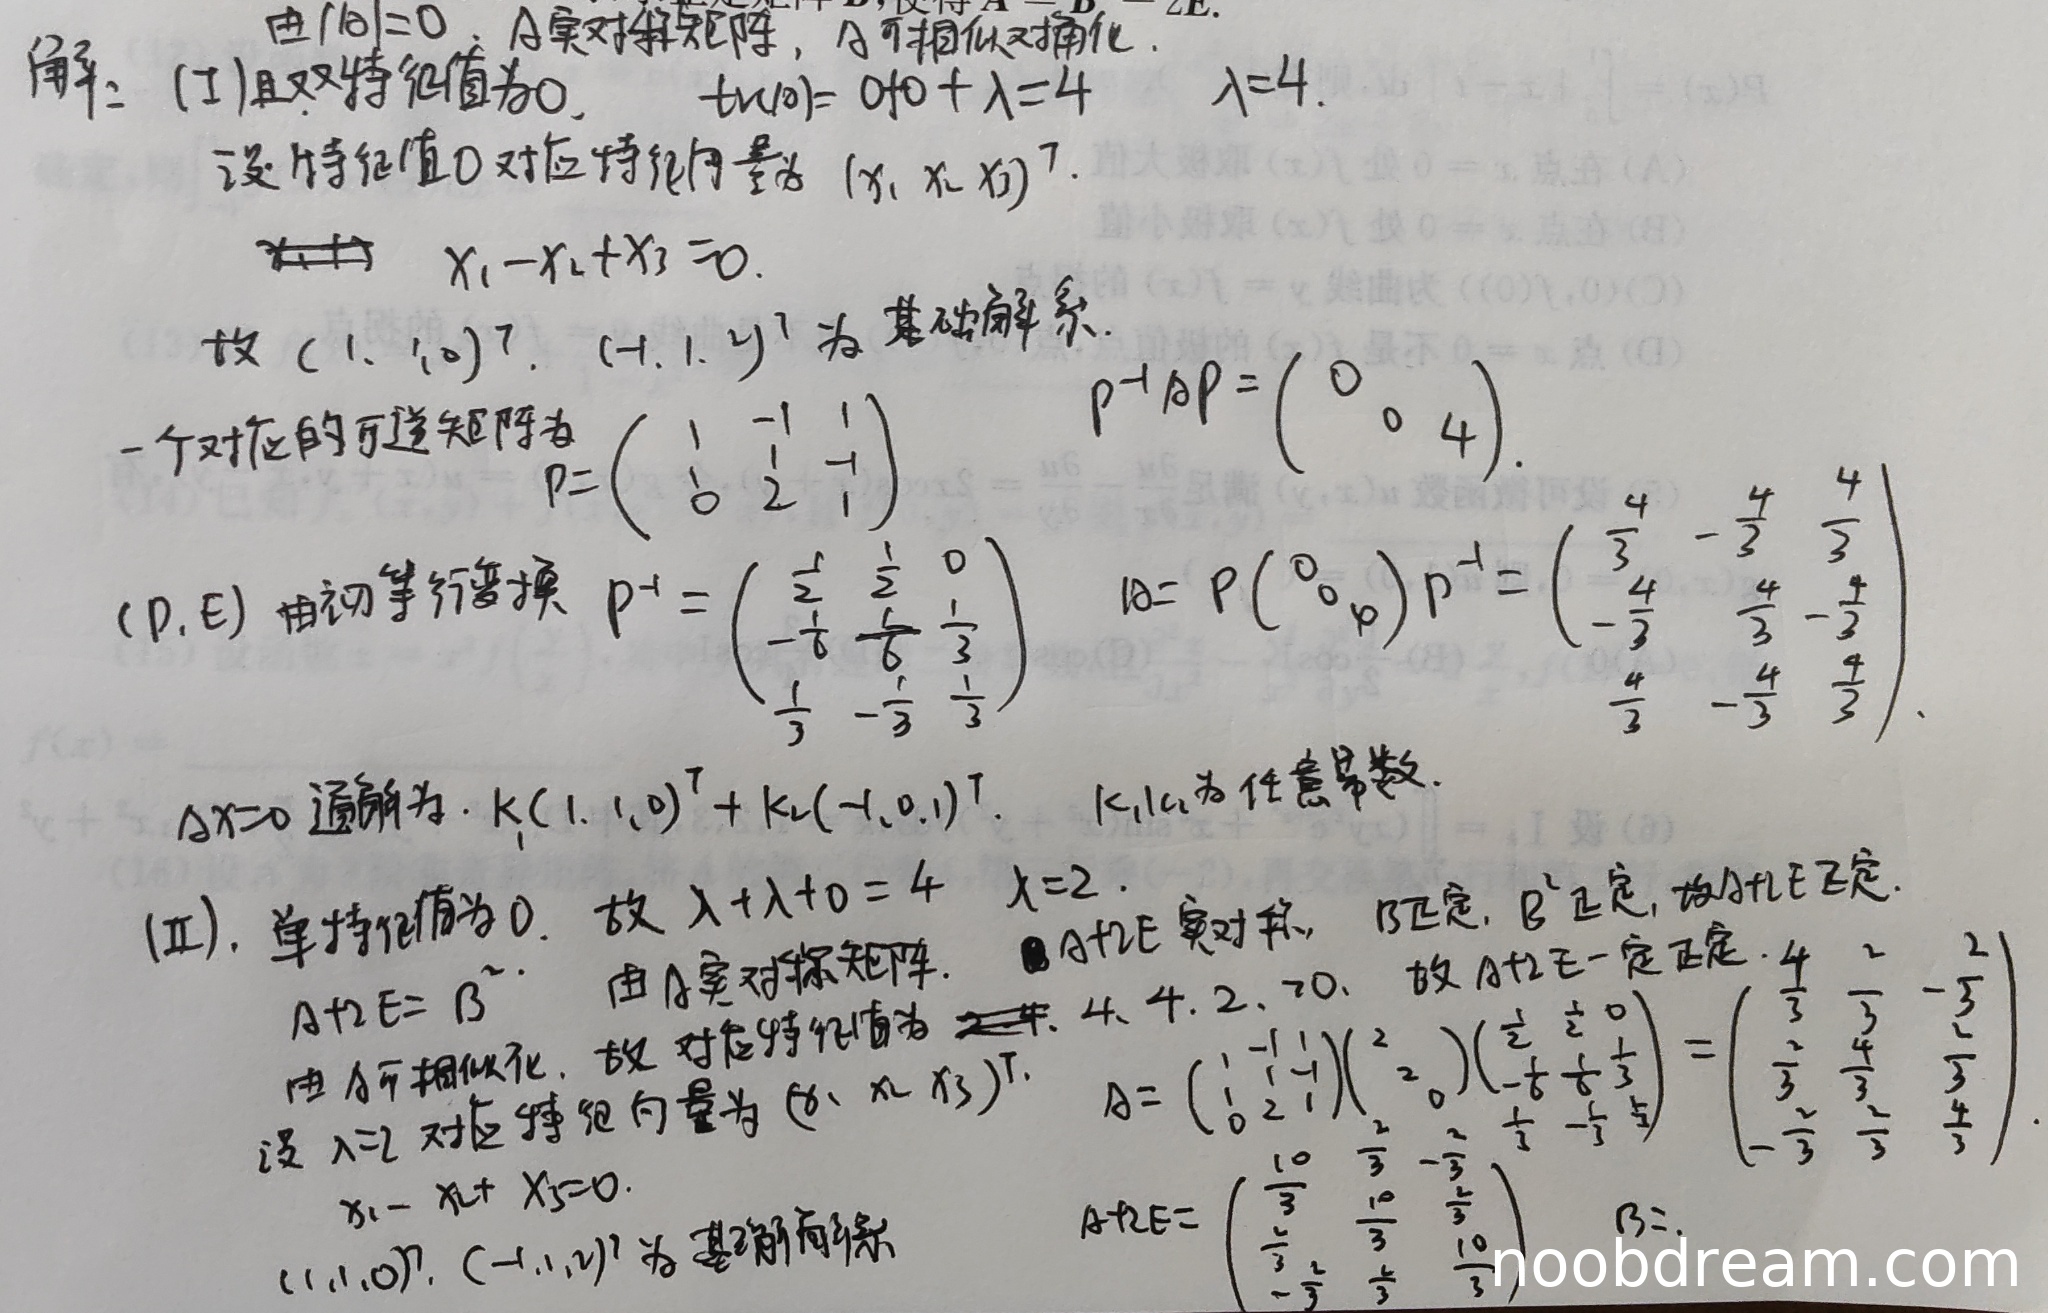 使得 A = B² - 2E.
由|A|=0, A实对称矩阵, A可相似对角化.
解: (I) 且双特征值为0, tr(A)=0+0+λ=4 λ=4.
设特征值0对应特征向量为 (x₁ x₂ x₃)ᵀ.
x₁-x₂+x₃=0.
故 (1.1,0)ᵀ. (-1.1.2)ᵀ 为基础解系.
一个对应的可逆矩阵为 P=(1 -1 1; 1 1 -1; 0 2 1) P⁻¹AP=(0 0 4).
(P,E) 由初等行变换 P⁻¹=(1/2 1/2 0; -1/6 1/6 1/3; 1/3 -1/3 1/3) A=P(0 0 4)P⁻¹=(4/3 -4/3 4/3; -4/3 4/3 -4/3; 4/3 -4/3 4/3).
Ax=0 通解为. K₁(1.1,0)ᵀ+K₂(-1,0,1)ᵀ. K₁,K₂为任意常数.
(II). 单特征值为0. 故 λ+λ+0=4 λ=2.
A+2E=B². 由A实对称矩阵. A+2E实对称, B正定, B²正定, 故A+2E正定.
由A可相似化, 故对应特征值为 4、4、2、>0. 故A+2E一定正定.
设λ=2对应特征向量为 (x₁ x₂ x₃)ᵀ.
x₁-x₂+x₃=0.
(1,1,0)ᵀ, (-1,1,2)ᵀ为基础解系
A=(1 -1 1; 1 1 -1; 0 2 1)(2 2 0)(1/2 1/2 0; -1/6 1/6 1/3; 1/3 -1/3 1/3)=(4/3 2/3 -2/3; 2/3 4/3 2/3; -2/3 2/3 4/3).
A+2E=(10/3 2/3 -2/3; 2/3 10/3 2/3; -2/3 2/3 10/3) B=.
noobdream.com